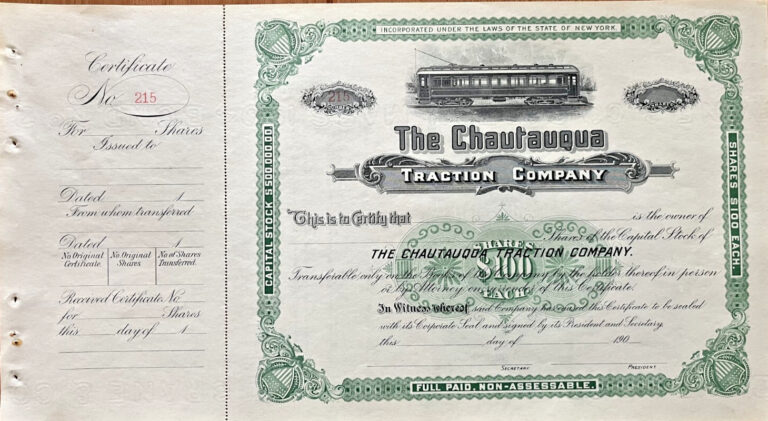 Certificate
No 215
For Shares
Issued to
Dated 1
From whom transferred
Dated 1
No. Original Certificate. No. Original Shares No of Shares Transferred.
Received Certificate No
for Shares
this day of 1
INCORPORATED UNDER THE LAWS OF THE STATE OF NEW YORK.
215
The Chautauqua
TRACTION COMPANY
CAPITAL STOCK $500,000.00
SHARES $100 EACH.
This is to Certify that is the owner of
Shares of the Capital Stock of
THE CHAUTAUQUA TRACTION COMPANY.
SHARES
$100
EACH
Transferable only on the Books of the Company by the holder thereof in person
or by Attorney on surrender of this Certificate.
In Witness whereof said Company has caused this Certificate to be sealed
with its Corporate Seal and signed by its President and Secretary.
this day of 190
SECRETARY PRESIDENT
FULL PAID, NON-ASSESSABLE.